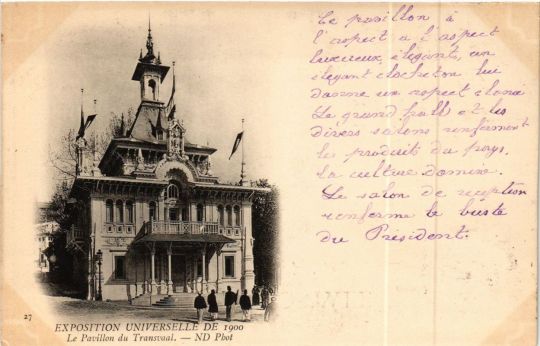 Ce pavillon à
l'aspect a l'aspect
luxueux, élégant, un
élégant clocheton lui
donne un aspect élancé
Le grand hall et les
divers salons renferment
les produit du pays.
la culture domine.
Le salon de réception
renferme le buste
du Président.
27
EXPOSITION UNIVERSELLE DE 1900
Le Pavillon du Transvaal. — ND Phot